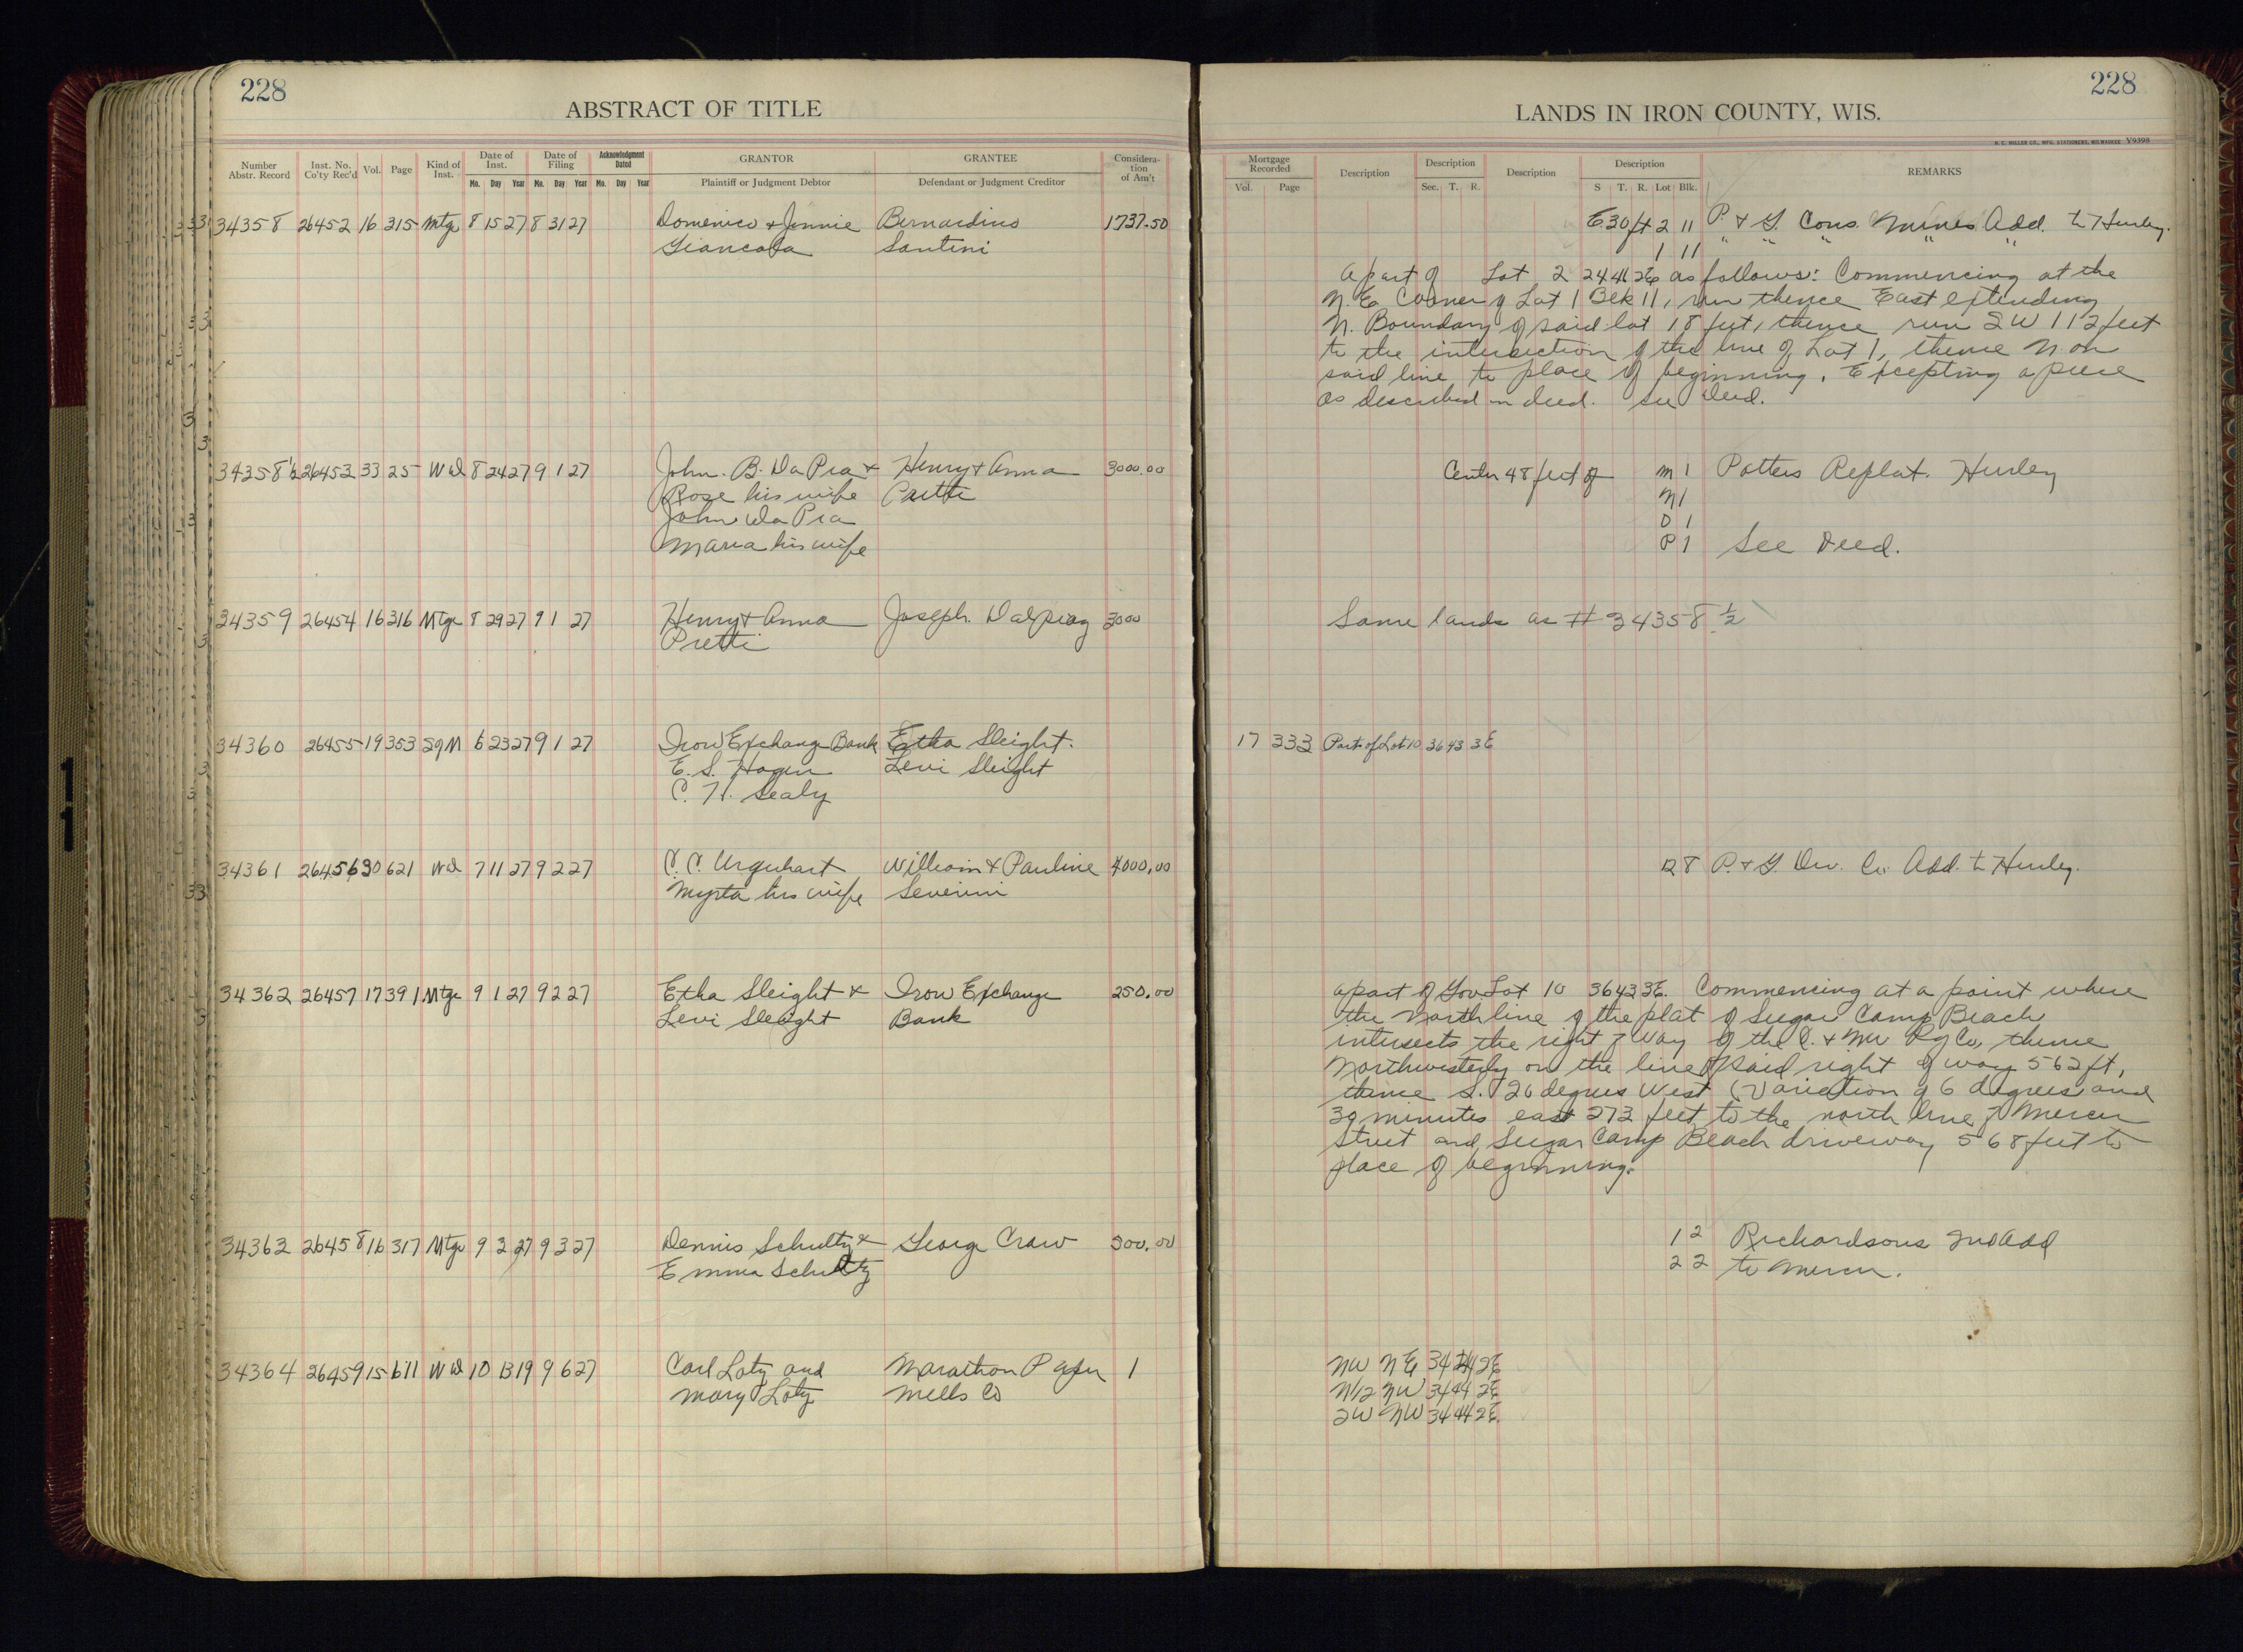 228
ABSTRACT OF TITLE
Number Abstr. Record
Inst. No. Co'ty Rec'd
Vol.
Page
Kind of Inst.
Date of Inst.
Mo. Day Year
Date of Filing
Mo. Day Year
Acknowledgment Dated
Mo. Day Year
GRANTOR
Plaintiff or Judgment Debtor
GRANTEE
Defendant or Judgment Creditor
Considera-tion of Am't
34358 26452 16 315 Mtge 8 15 27 8 31 27 Domenico & Jennie Bernardino 1737.50
Giancola Santini
34358½ 26453 33 25 Wd 8 24 27 9 1 27 John. B. Da Pra & Henry & Anna 3000.00
Rose his wife
John Da Pra
Maria his wife
34359 26454 16 316 Mtge 8 29 27 9 1 27 Henry & Anna Joseph. Dalpiaz 3000
Pretti
34360 26455 19 353 Sg M 6 23 27 9 1 27 Iron Exchange Bank Etha Sleight.
E. S. Hagen Levi Sleight
C. H. Sealy
34361 26456 30 621 Wd 7 11 27 9 2 27 C. C. Urquhart William & Pauline 4000.00
Myrta his wife Severini
34362 26457 17 391 Mtge 9 1 27 9 2 27 Etha Sleight & Iron Exchange 250.00
Levi Sleight Bank
34363 26458 16 317 Mtge 9 2 27 9 3 27 Dennis Schultz & George Craw 300.00
Emma Schultz
34364 26459 15 611 Wd 10 13 19 9 6 27 Carl Lotz and Marathon Paper 1
Mary Lotz Mills Co
228
LANDS IN IRON COUNTY, WIS.
H. C. MILLER CO., MFG. STATIONERS, MILWAUKEE V9398
Mortgage Recorded
Vol. Page
Description
Description
Sec. T. R.
Description
Description
S T. R. Lot Blk.
REMARKS
E 30 ft 2 11 P. & G. Cons. Mines Add. to Hurley.
1 11 " " " " "
A part of Lot 2 24 46 2E as follows: Commencing at the
N. E. Corner of Lot 1 Blk 11, run thence East extending
N. Boundary of said lot 18 feet, thence run SW 112 feet
to the intersection of the line of Lot 1, thence N. on
said line to place of beginning. Excepting a piece
as described in deed. See Deed.
Center 48 feet of M 1 Potters Replat. Hurley
N 1
O 1
P 1 See Deed.
Same lands as # 34358 ½
17 333 Part of Lot 10 36 43 3E
12 8 P. & G. Dev. Co. Add. to Hurley.
A part of Gov. Lot 10 36 43 3E. Commencing at a point where
the North line of the plat of Sugar Camp Beach
intersects the right of way of the C. & NW Ry Co, thence
Northwesterly on the line of said right of way 562 ft,
thence S. 26 degrees West (Variation of 6 degrees and
30 minutes east 273 feet to the north line of Mercer
Street and Sugar Camp Beach driveway 568 feet to
place of beginning.
1 2 Richardsons 2nd Add
2 2 to Mercer.
NW NE 34 44 2E
N/2 NW 34 44 2E
SW NW 34 44 2E.